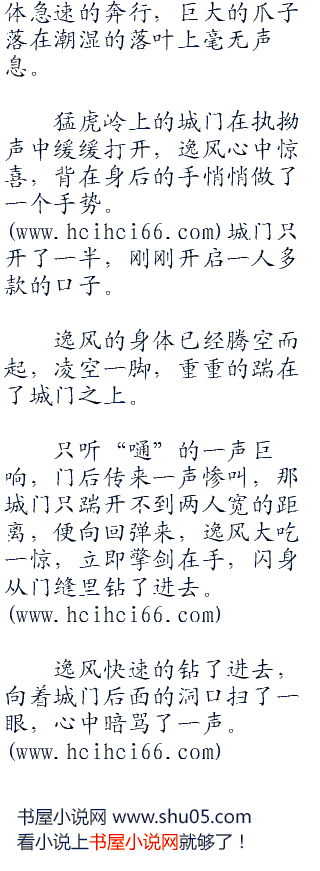 体急速的奔行，巨大的爪子
落在潮湿的落叶上毫无声
息。
猛虎岭上的城门在执拗
声中缓缓打开，逸风心中惊
喜，背在身后的手悄悄做了
一个手势。
(www.hcihci66.com)城门只
开了一半，刚刚开启一人多
款的口子。
逸风的身体已经腾空而
起，凌空一脚，重重的踹在
了城门之上。
只听“嗵”的一声巨
响，门后传来一声惨叫，那
城门只踹开不到两人宽的距
离，便向回弹来，逸风大吃
一惊，立即擎剑在手，闪身
从门缝里钻了进去。
(www.hcihci66.com)
逸风快速的钻了进去，
向着城门后面的洞口扫了一
眼，心中暗骂了一声。
(www.hcihci66.com)
书屋小说网 www.shu05.com
看小说上书屋小说网就够了！